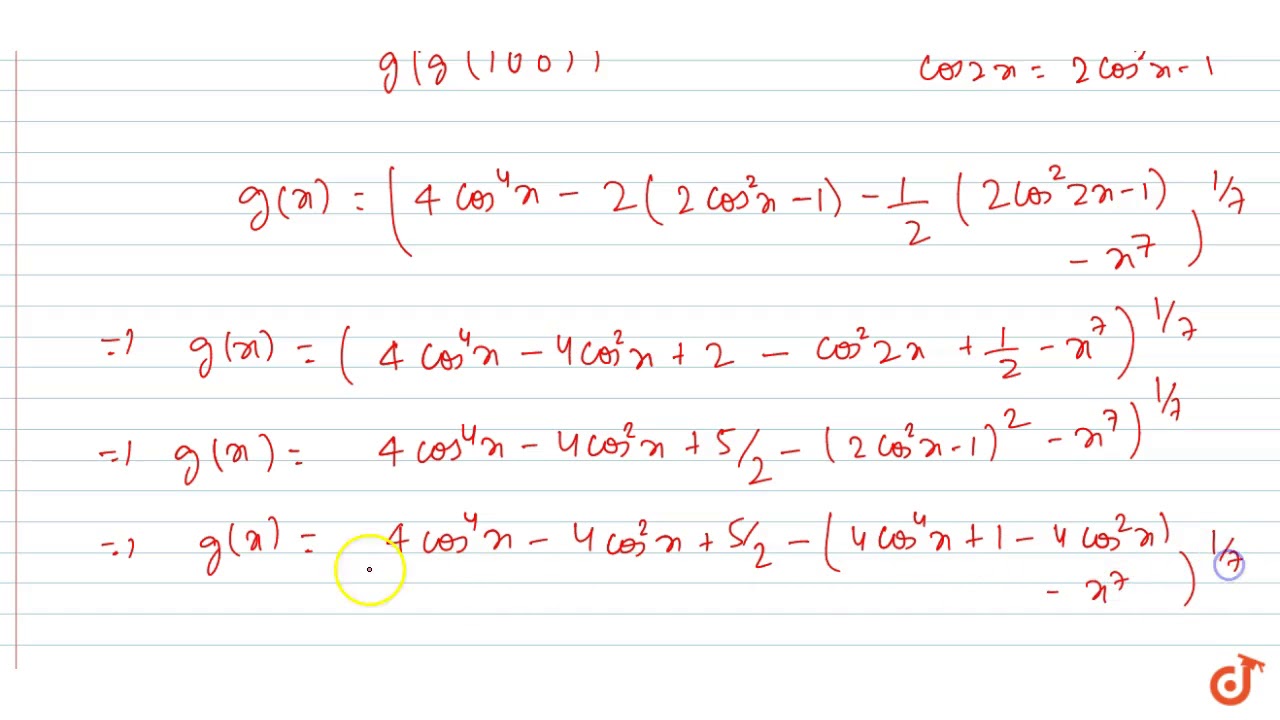 g(g(100))
cos2x = 2cos²x-1
g(x) = (4cos⁴x - 2(2cos²x-1) - 1/2 (2cos²2x-1) - x⁷)^1/7
=> g(x) = (4cos⁴x - 4cos²x + 2 - cos²2x + 1/2 - x⁷)^1/7
=> g(x) = 4cos⁴x - 4cos²x + 5/2 - (2cos²x-1)² - x⁷)^1/7
=> g(x) = 4cos⁴x - 4cos²x + 5/2 - (4cos⁴x + 1 - 4cos²x) - x⁷)^1/7